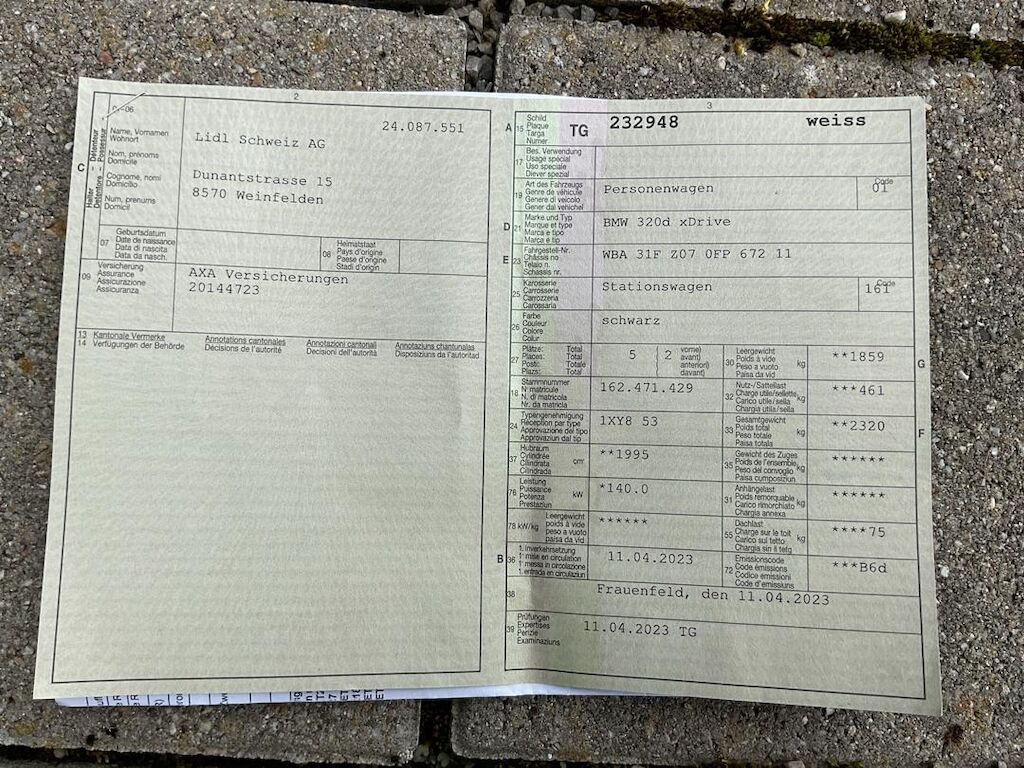 2
01-06
24.087.551
C
Halter
Détenteur
Detentore
Possessur
Name, Vornamen
Wohnort
Nom, prénoms
Domicile
Cognome, nomi
Domicilio
Num, prenums
Domicil
Lidl Schweiz AG
Dunantstrasse 15
8570 Weinfelden
07
Geburtsdatum
Date de naissance
Data di nascita
Data da nasch.
08
Heimatstaat
Pays d'origine
Paese d'origine
Stadi d'origin
09
Versicherung
Assurance
Assicurazione
Assicuranza
AXA Versicherungen
20144723
13
14
Kantonale Vermerke
Verfügungen der Behörde
Annotations cantonales
Décisions de l'autorité
Annotazioni cantonali
Decisioni dell'autorità
Annotaziuns chantunalas
Disposiziuns da l'autoritad
3
A 15
Schild
Plaque
Targa
Numer
TG 232948 weiss
17
Bes. Verwendung
Usage spécial
Uso speciale
Diever spezial
19
Art des Fahrzeugs
Genre de véhicule
Genere di veicolo
Gener dal vehichel
Personenwagen
Code
01
D 21
Marke und Typ
Marque et type
Marca e tipo
Marca e tip
BMW 320d xDrive
E 23
Fahrgestell-Nr.
Châssis no
Telaio n.
Schassis nr.
WBA 31F Z07 0FP 672 11
25
Karosserie
Carrosserie
Carrozzeria
Carossaria
Stationswagen
Code
161
26
Farbe
Couleur
Colore
Colur
schwarz
27
Plätze: Total
Places: Total
Posti: Totale
Plazs: Total
5 ( 2
vorne)
avant)
anteriori)
davant)
30
Leergewicht
Poids à vide
Peso a vuoto
Paisa da vid
kg
**1859
G
18
Stammnummer
N° matricule
N. di matricola
Nr. da matricla
162.471.429
32
Nutz-/Sattellast
Charge utile/sellette
Carico utile/sella
Chargia utila/sella
kg
***461
24
Typengenehmigung
Réception par type
Approvazione del tipo
Approvaziun dal tip
1XY8 53
33
Gesamtgewicht
Poids total
Peso totale
Paisa totala
kg
**2320
F
37
Hubraum
Cylindrée
Cilindrata
Cilindrada
cm³
**1995
35
Gewicht des Zuges
Poids de l'ensemble
Peso del convoglio
Paisa cumposiziun
kg
******
76
Leistung
Puissance
Potenza
Prestaziun
kW
*140.0
31
Anhängelast
Poids remorquable
Carico rimorchiato
Chargia annexa
kg
******
78 kW/kg
Leergewicht
poids à vide
peso a vuoto
paisa da vid
******
55
Dachlast
Charge sur le toit
Carico sul tetto
Chargia sin il tetg
kg
****75
B 36
1. Inverkehrsetzung
1re mise en circulation
1a messa in circolazione
1. entrada en circulaziun
11.04.2023
72
Emissionscode
Code émissions
Codice emissioni
Code d'emissiuns
***B6d
38
Frauenfeld, den 11.04.2023
39
Prüfungen
Expertises
Perizie
Examinaziuns
11.04.2023 TG